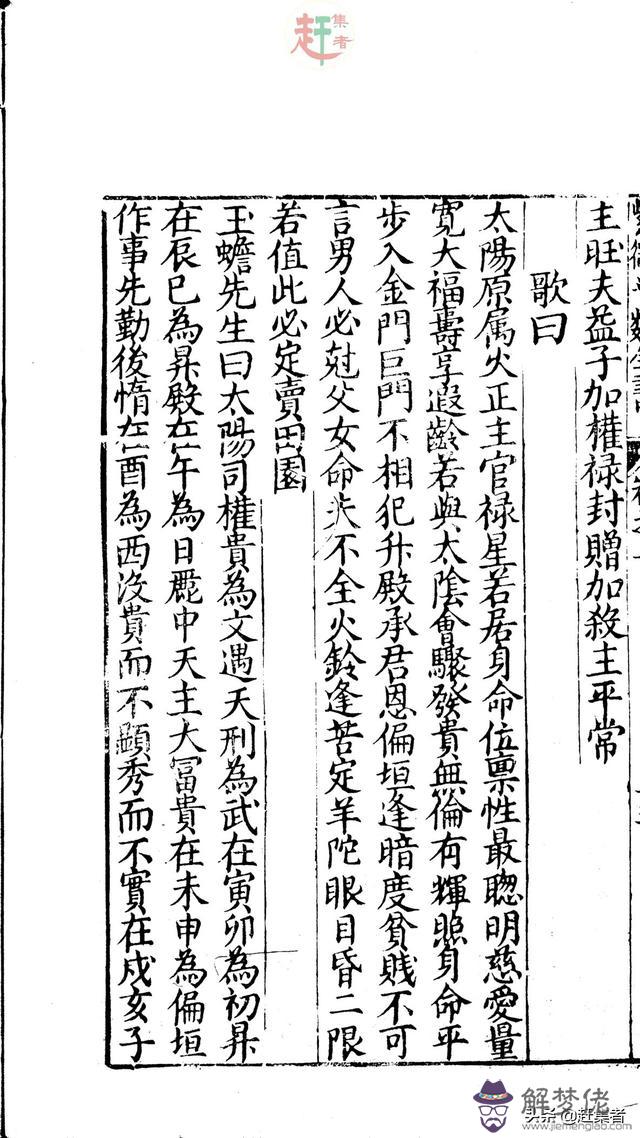 主旺夫益子加權祿封贈加殺主平常
歌曰
太陽原属火正主官祿星若居身命位禀性最聦明慈愛量
寬大福壽享遐齡若與太陰會驟發貴無倫有輝照身命平
步入金門巨門不相犯升殿承君恩偏垣逢暗度貧賤不可
言男人必尅父女命夫不全火鈴逢苦定羊陀眼目昏二限
若值此必定賣田園
玉蟾先生曰太陽司權貴為文遇天刑為武在寅卯為初昇
在辰巳為昇殿在午為日麗中天主大冨貴在未申為偏垣
作事先勤後惰在酉為西沒貴而不顯秀而不實在戍亥子
赶集者
解梦佬
www.jiemenglao.com
头条@赶集者